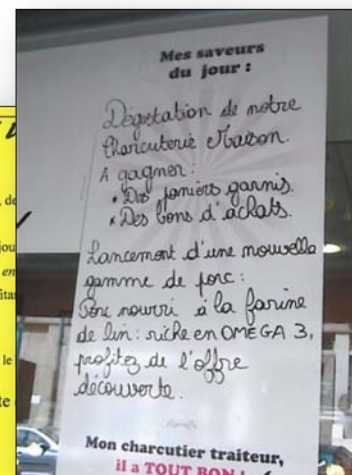 Mes saveurs
du jour :
Dégustation de notre
Charcuterie Maison.
A gagner :
• Des paniers garnis.
• Des bons d'achats.
Lancement d'une nouvelle
gamme de porc :
Porc nourri à la farine
de lin : riche en OMEGA 3,
profitez de l'offre
découverte.
Mon charcutier traiteur,
il a TOUT BON !